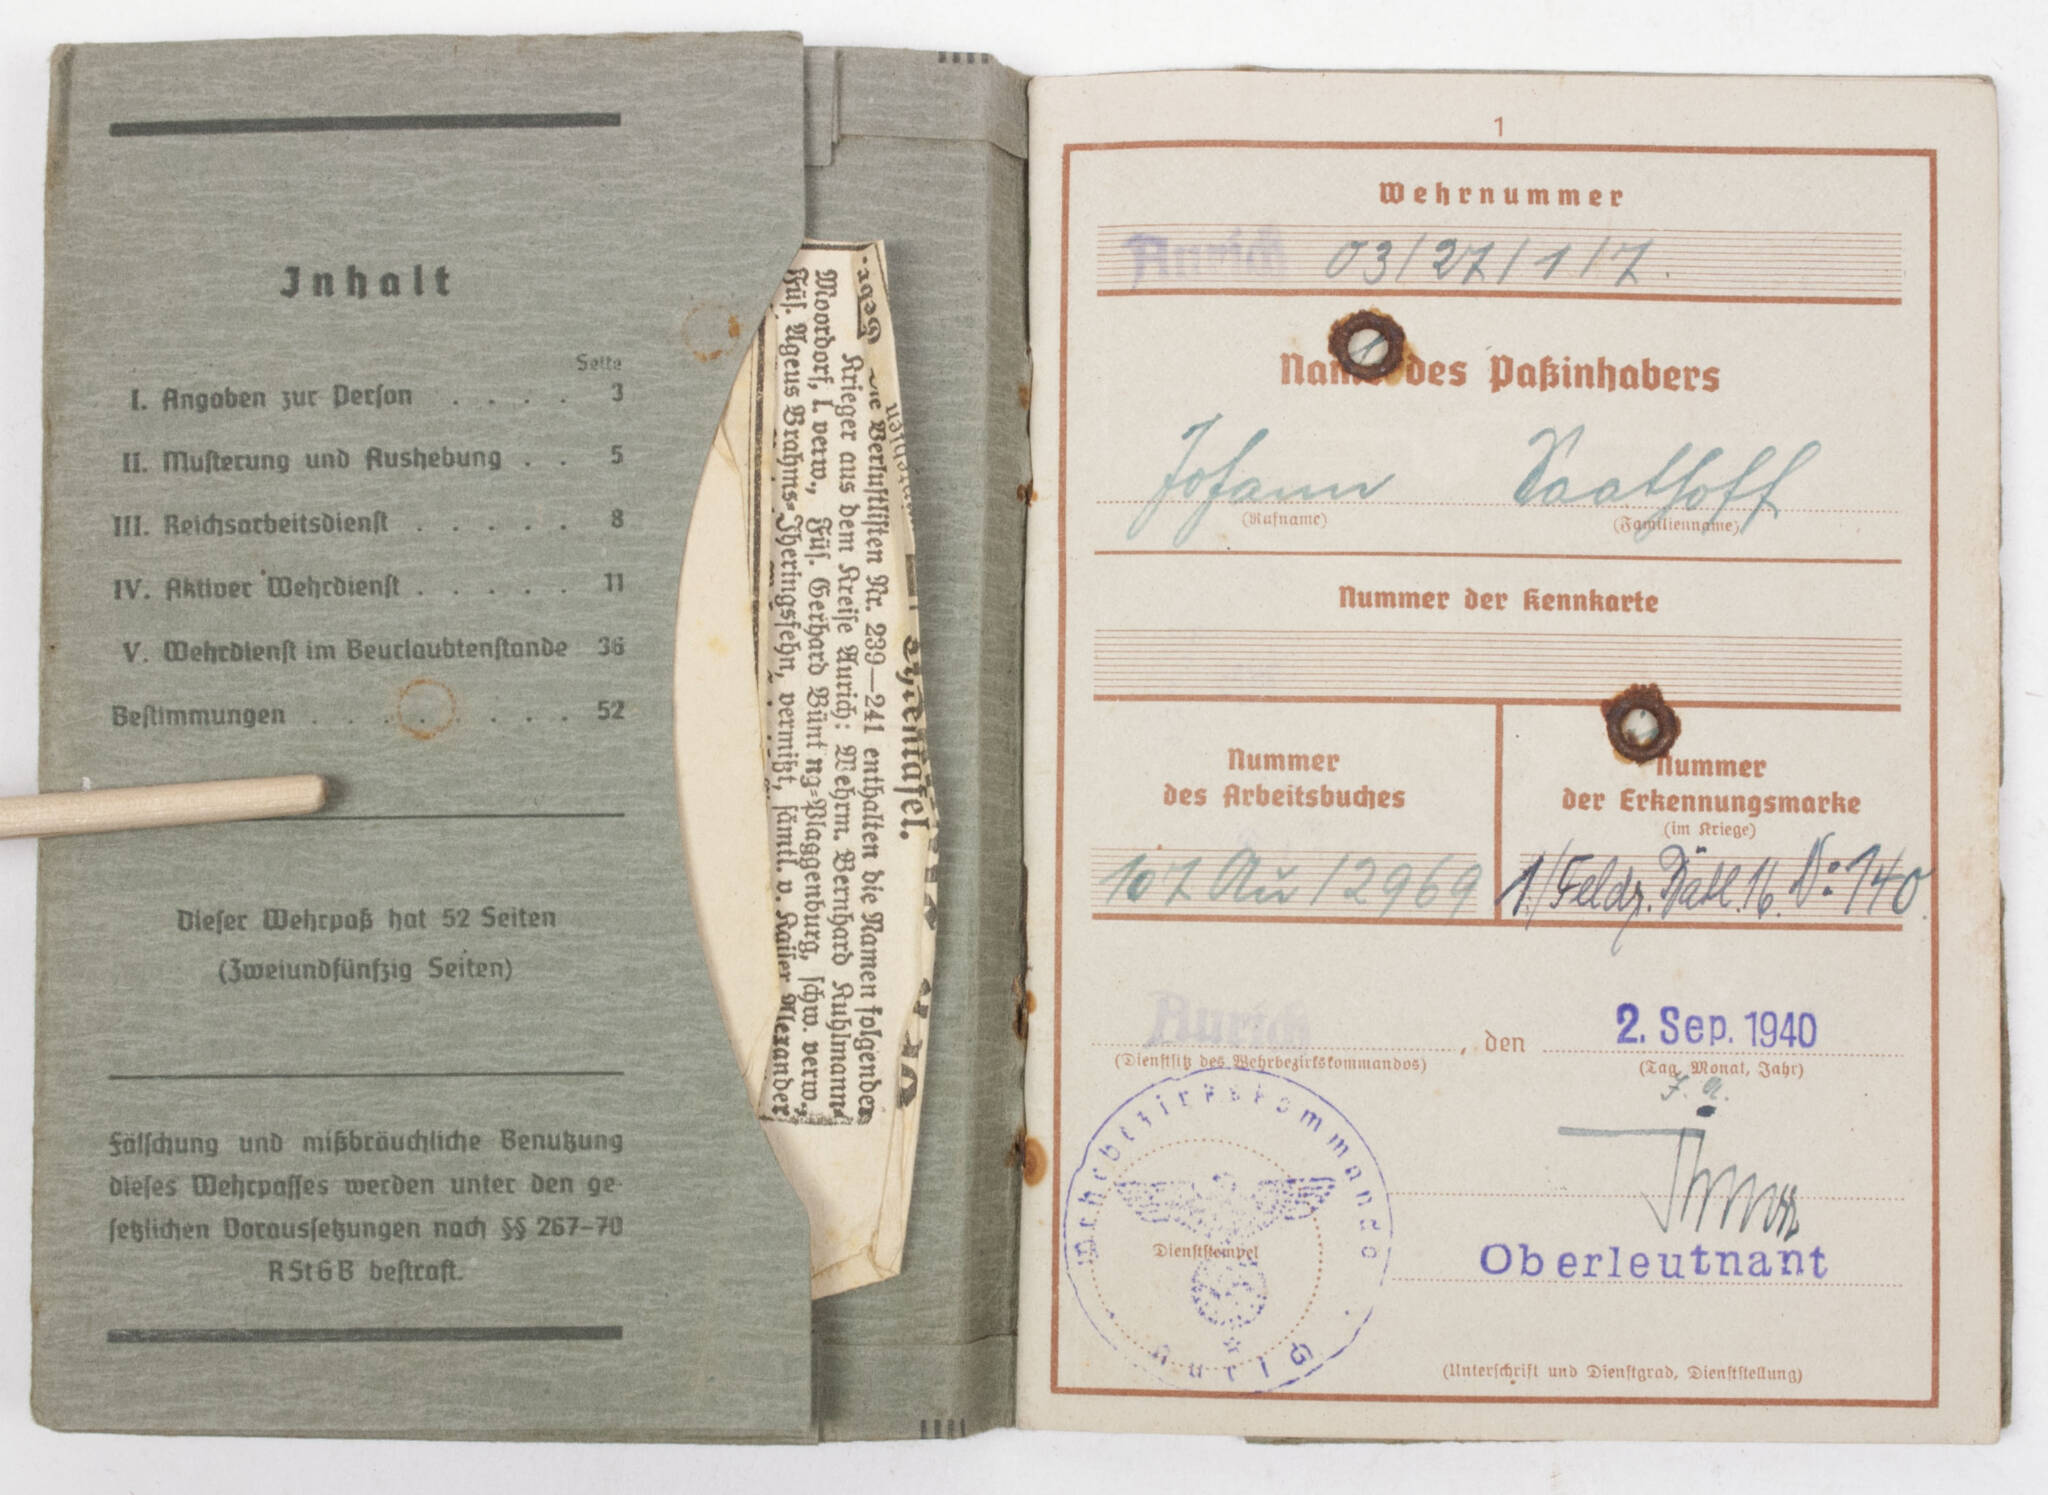 Inhalt
Seite
I. Angaben zur Person . . . . 3
II. Musterung und Aushebung . . 5
III. Reichsarbeitsdienst . . . . . 8
IV. Aktiver Wehrdienst . . . . . 11
V. Wehrdienst im Beurlaubtenstande 36
Bestimmungen . . . . . . . . 52
Dieser Wehrpaß hat 52 Seiten
(Zweiundfünfzig Seiten)
Fälschung und mißbräuchliche Benutzung
dieses Wehrpasses werden unter den ge-
setzlichen Voraussetzungen nach §§ 267-70
RStGB bestraft.
Verlustlisten Nr. 239—241 enthalten die Namen folgender
Krieger aus dem Kreise Aurich: Wehrm. Bernhard Kuhlmann-
Moordorf, l. verw., Füs. Gerhard Bünting-Plaggenburg, schw. verw.,
Füs. Ageus Brahms-Iheringsfehn, vermißt, sämtl. v. Kaiser Alexander
1
Wehrnummer
Aurich 03/27/1/7.
Name des Paßinhabers
Johann Saathoff
(Rufname) (Familienname)
Nummer der Kennkarte
Nummer
des Arbeitsbuches
107 Au/2969
Nummer
der Erkennungsmarke
(im Kriege)
1./Feldz. Batl. 16. No: 140
Aurich, den 2. Sep. 1940
(Dienstsitz des Wehrbezirkskommandos) (Tag, Monat, Jahr)
J. A.
Wehrbezirkskommando
Dienststempel
Aurich
Oberleutnant
(Unterschrift und Dienstgrad, Dienststellung)